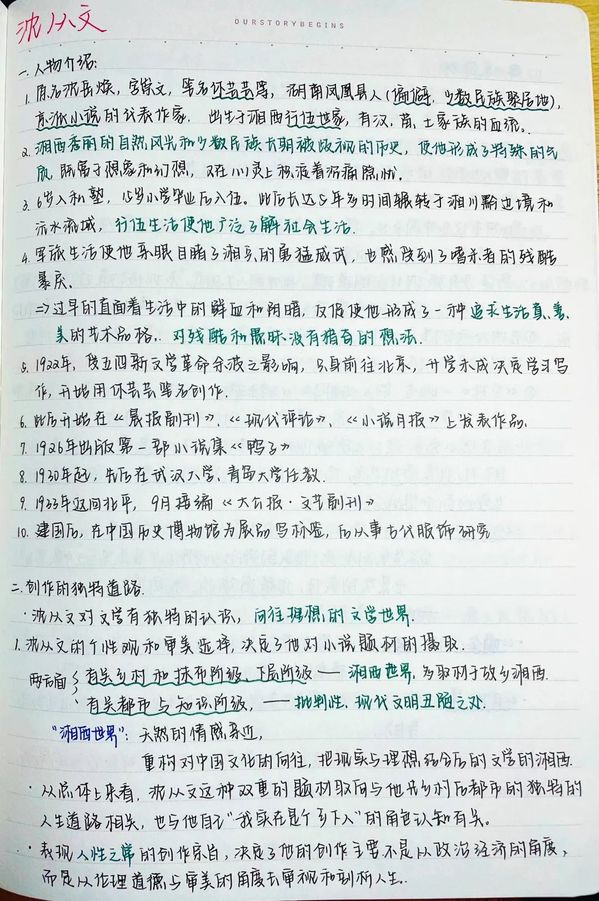 沈从文
OURSTORYBEGINS
一. 人物介绍:
1. 原名沈岳焕, 字崇文, 笔名休芸芸等, 湖南凤凰县人(偏僻, 少数民族聚居地),
京派小说的代表作家. 出生于湘西行伍世家, 有汉, 苗, 土家族的血统.
2. 湘西秀丽的自然风光和少数民族长期被歧视的历史, 使他形成了特殊的气
质, 既富于想象和幻想, 又在心灵上积淀着沉痛隐忧.
3. 6岁入私塾, 15岁小学毕业后入伍. 此后长达5年多时间辗转于湘川黔边境和
沅水流域, 行伍生活使他广泛了解社会生活.
4. 军旅生活使他亲眼目睹了湘兵的勇猛威武, 也感受到了嗜杀者的残酷
暴戾.
⇒过早的直面着生活中的鲜血和阴暗, 反倒使他形成了一种追求生活真、善、
美的艺术品格, 对残酷和愚昧没有猎奇的想法.
5. 1922年, 受五四新文学革命余波之影响, 只身前往北京, 升学未成决定学习写
作, 开始用休芸芸笔名创作.
6. 此后开始在《晨报副刊》、《现代评论》、《小说月报》上发表作品.
7. 1926年出版第一部小说集《鸭子》
8. 1930年起, 先后在武汉大学、青岛大学任教.
9. 1933年返回北平, 9月接编《大公报·文艺副刊》
10. 建国后, 在中国历史博物馆为展品写标签, 后从事古代服饰研究
二. 创作的独特道路.
· 沈从文对文学有独特的认识, 向往理想的文学世界.
1. 沈从文的个性观和审美选择, 决定了他对小说题材的摄取.
两方面 { 有关乡村和抹布阶级、下层阶级 —— 湘西世界, 多取材于故乡湘西.
有关都市与知识阶级, —— 批判性、现代文明丑陋之处.
"湘西世界": 天然的情感亲近,
重构对中国文化的向往, 把现实与理想结合后的文学的湘西.
· 从总体上来看, 沈从文这种双重的题材取向与他先乡村后都市的独特的
人生道路相关, 也与他自己"我实在是个乡下人"的角色认知有关.
· 表现人性之常的创作宗旨, 决定了他的创作主要不是从政治经济的角度,
而是从伦理道德与审美的角度去审视和剖析人生.